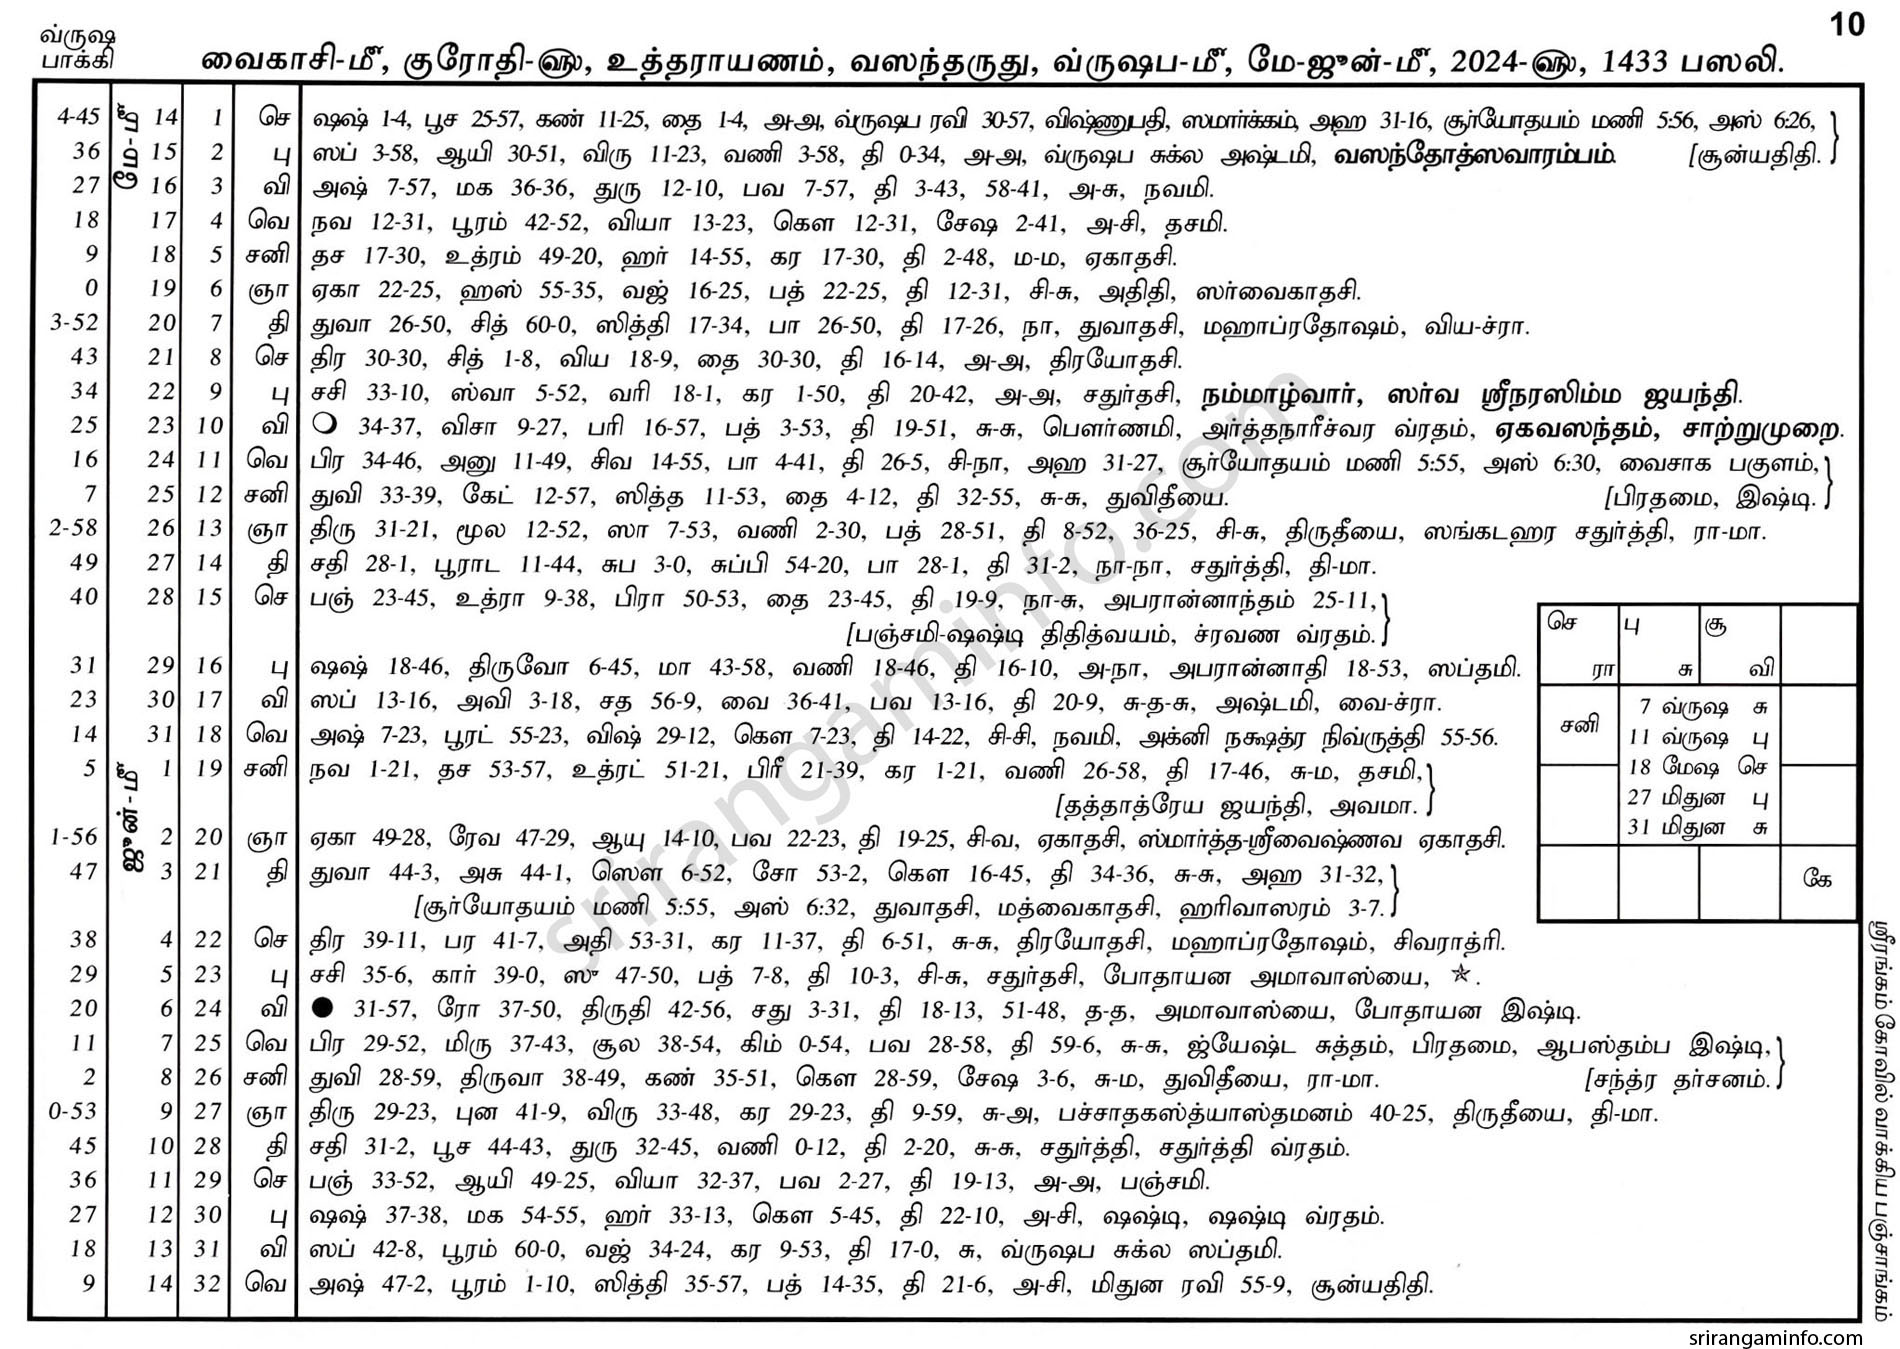 10
வ்ருஷ
பாக்கி
வைகாசி-மீ, குரோதி-௵, உத்தராயணம், வஸந்தருது, வ்ருஷப-மீ, மே-ஜூன்-மீ, 2024-௵, 1433 பஸலி.
மே-மீ
4-45 14 1 செ ஷஷ் 1-4, பூச 25-57, கண் 11-25, தை 1-4, அ-அ, வ்ருஷப ரவி 30-57, விஷ்ணுபதி, ஸமார்க்கம், அஹ 31-16, சூர்யோதயம் மணி 5:56, அஸ் 6:26,
36 15 2 பு ஸப் 3-58, ஆயி 30-51, விரு 11-23, வணி 3-58, தி 0-34, அ-அ, வ்ருஷப சுக்ல அஷ்டமி, வஸந்தோத்ஸவாரம்பம். [சூன்யதிதி.
27 16 3 வி அஷ் 7-57, மக 36-36, துரு 12-10, பவ 7-57, தி 3-43, 58-41, அ-சு, நவமி.
18 17 4 வெ நவ 12-31, பூரம் 42-52, வியா 13-23, கௌ 12-31, சேஷ 2-41, அ-சி, தசமி.
9 18 5 சனி தச 17-30, உத்ரம் 49-20, ஹர் 14-55, கர 17-30, தி 2-48, ம-ம, ஏகாதசி.
0 19 6 ஞா ஏகா 22-25, ஹஸ் 55-35, வஜ் 16-25, பத் 22-25, தி 12-31, சி-சு, அதிதி, ஸர்வைகாதசி.
3-52 20 7 தி துவா 26-50, சித் 60-0, ஸித்தி 17-34, பா 26-50, தி 17-26, நா, துவாதசி, மஹாப்ரதோஷம், விய-ச்ரா.
43 21 8 செ திர 30-30, சித் 1-8, விய 18-9, தை 30-30, தி 16-14, அ-அ, திரயோதசி.
34 22 9 பு சசி 33-10, ஸ்வா 5-52, வரி 18-1, கர 1-50, தி 20-42, அ-அ, சதுர்தசி, நம்மாழ்வார், ஸர்வ ஸ்ரீநரஸிம்ம ஜயந்தி.
25 23 10 வி 34-37, விசா 9-27, பரி 16-57, பத் 3-53, தி 19-51, சு-சு, பௌர்ணமி, அர்த்தநாரீச்வர வ்ரதம், ஏகவஸந்தம், சாற்றுமுறை.
16 24 11 வெ பிர 34-46, அனு 11-49, சிவ 14-55, பா 4-41, தி 26-5, சி-நா, அஹ 31-27, சூர்யோதயம் மணி 5:55, அஸ் 6:30, வைசாக பகுளம்,
7 25 12 சனி துவி 33-39, கேட் 12-57, ஸித்த 11-53, தை 4-12, தி 32-55, சு-சு, துவிதீயை. [பிரதமை, இஷ்டி.
2-58 26 13 ஞா திரு 31-21, மூல 12-52, ஸா 7-53, வணி 2-30, பத் 28-51, தி 8-52, 36-25, சி-சு, திருதீயை, ஸங்கடஹர சதுர்த்தி, ரா-மா.
49 27 14 தி சதி 28-1, பூராட 11-44, சுப 3-0, சுப்பி 54-20, பா 28-1, தி 31-2, நா-நா, சதுர்த்தி, தி-மா.
40 28 15 செ பஞ் 23-45, உத்ரா 9-38, பிரா 50-53, தை 23-45, தி 19-9, நா-சு, அபரான்னாந்தம் 25-11,
[பஞ்சமி-ஷஷ்டி திதித்வயம், ச்ரவண வ்ரதம்.
31 29 16 பு ஷஷ் 18-46, திருவோ 6-45, மா 43-58, வணி 18-46, தி 16-10, அ-நா, அபரான்னாதி 18-53, ஸப்தமி.
23 30 17 வி ஸப் 13-16, அவி 3-18, சத 56-9, வை 36-41, பவ 13-16, தி 20-9, சு-த-சு, அஷ்டமி, வை-ச்ரா.
14 31 18 வெ அஷ் 7-23, பூரட் 55-23, விஷ் 29-12, கௌ 7-23, தி 14-22, சி-சி, நவமி, அக்னி நக்ஷத்ர நிவ்ருத்தி 55-56.
ஜூன்-மீ
5 1 19 சனி நவ 1-21, தச 53-57, உத்ரட் 51-21, பிரீ 21-39, கர 1-21, வணி 26-58, தி 17-46, சு-ம, தசமி,
[தத்தாத்ரேய ஜயந்தி, அவமா.
1-56 2 20 ஞா ஏகா 49-28, ரேவ 47-29, ஆயு 14-10, பவ 22-23, தி 19-25, சி-வ, ஏகாதசி, ஸ்மார்த்த-ஸ்ரீவைஷ்ணவ ஏகாதசி.
47 3 21 தி துவா 44-3, அசு 44-1, ஸௌ 6-52, சோ 53-2, கௌ 16-45, தி 34-36, சு-சு, அஹ 31-32,
[சூர்யோதயம் மணி 5:55, அஸ் 6:32, துவாதசி, மத்வைகாதசி, ஹரிவாஸரம் 3-7.
38 4 22 செ திர 39-11, பர 41-7, அதி 53-31, கர 11-37, தி 6-51, சு-சு, திரயோதசி, மஹாப்ரதோஷம், சிவராத்ரி.
29 5 23 பு சசி 35-6, கார் 39-0, ஸு 47-50, பத் 7-8, தி 10-3, சி-சு, சதுர்தசி, போதாயன அமாவாஸ்யை, ☆.
20 6 24 வி ● 31-57, ரோ 37-50, திருதி 42-56, சது 3-31, தி 18-13, 51-48, த-த, அமாவாஸ்யை, போதாயன இஷ்டி.
11 7 25 வெ பிர 29-52, மிரு 37-43, சூல 38-54, கிம் 0-54, பவ 28-58, தி 59-6, சு-சு, ஜ்யேஷ்ட சுத்தம், பிரதமை, ஆபஸ்தம்ப இஷ்டி,
2 8 26 சனி துவி 28-59, திருவா 38-49, கண் 35-51, கௌ 28-59, சேஷ 3-6, சு-ம, துவிதீயை, ரா-மா. [சந்த்ர தர்சனம்.
0-53 9 27 ஞா திரு 29-23, புன 41-9, விரு 33-48, கர 29-23, தி 9-59, சு-அ, பச்சாதகஸ்த்யாஸ்தமனம் 40-25, திருதீயை, தி-மா.
45 10 28 தி சதி 31-2, பூச 44-43, துரு 32-45, வணி 0-12, தி 2-20, சு-சு, சதுர்த்தி, சதுர்த்தி வ்ரதம்.
36 11 29 செ பஞ் 33-52, ஆயி 49-25, வியா 32-37, பவ 2-27, தி 19-13, அ-அ, பஞ்சமி.
27 12 30 பு ஷஷ் 37-38, மக 54-55, ஹர் 33-13, கௌ 5-45, தி 22-10, அ-சி, ஷஷ்டி, ஷஷ்டி வ்ரதம்.
18 13 31 வி ஸப் 42-8, பூரம் 60-0, வஜ் 34-24, கர 9-53, தி 17-0, சு, வ்ருஷப சுக்ல ஸப்தமி.
9 14 32 வெ அஷ் 47-2, பூரம் 1-10, ஸித்தி 35-57, பத் 14-35, தி 21-6, அ-சி, மிதுன ரவி 55-9, சூன்யதிதி.
செ பு சூ
ரா சு வி
சனி
7 வ்ருஷ சு
11 வ்ருஷ பு
18 மேஷ செ
27 மிதுன பு
31 மிதுன சு
கே
ஸ்ரீரங்கம் கோவில் வாக்கிய பஞ்சாங்கம்
srirangaminfo.com
srirangaminfo.com